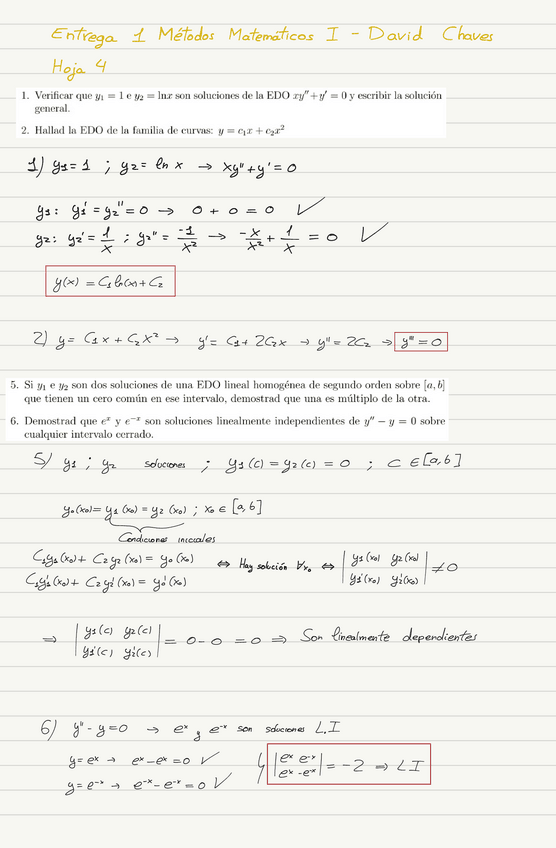 Entrega 1 Métodos Matemáticos I - David Chaves
Hoja 4
1. Verificar que y₁ = 1 e y₂ = lnx son soluciones de la EDO xy''+y' = 0 y escribir la solución
general.
2. Hallad la EDO de la familia de curvas: y = c₁x + c₂x²
1) y₁=1 ; y₂= ln x → xy''+y'=0
y₁: y₁' = y₂'' = 0 → 0 + 0 = 0 ✓
y₂: y₂' = 1/x ; y₂'' = -1/x² → -x/x² + 1/x = 0 ✓
y(x) = C₁ ln(x) + C₂
2) y = C₁x + C₂x² → y' = C₁ + 2C₂x → y'' = 2C₂ → y''' = 0
5. Si y₁ e y₂ son dos soluciones de una EDO lineal homogénea de segundo orden sobre [a, b]
que tienen un cero común en ese intervalo, demostrad que una es múltiplo de la otra.
6. Demostrad que eˣ y e⁻ˣ son soluciones linealmente independientes de y'' − y = 0 sobre
cualquier intervalo cerrado.
5) y₁ ; y₂ soluciones ; y₁(c) = y₂(c) = 0 ; c ∈ [a,b]
y₀(x₀) = y₁(x₀) = y₂(x₀) ; x₀ ∈ [a,b]
Condiciones iniciales
C₁y₁(x₀) + C₂y₂(x₀) = y₀(x₀) ⇔ Hay solución ∀x₀ ⇔ | y₁(x₀) y₂(x₀) | ≠ 0
C₁y₁'(x₀) + C₂y₂'(x₀) = y₀'(x₀) | y₁'(x₀) y₂'(x₀) |
⇒ | y₁(c) y₂(c) | = 0 - 0 = 0 ⇒ Son linealmente dependientes
| y₁'(c) y₂'(c) |
6) y'' - y = 0 → eˣ y e⁻ˣ son soluciones L.I
y = eˣ → eˣ - eˣ = 0 ✓ y | eˣ e⁻ˣ | = -2 ⇒ LI
y = e⁻ˣ → e⁻ˣ - e⁻ˣ = 0 ✓ | eˣ -e⁻ˣ |